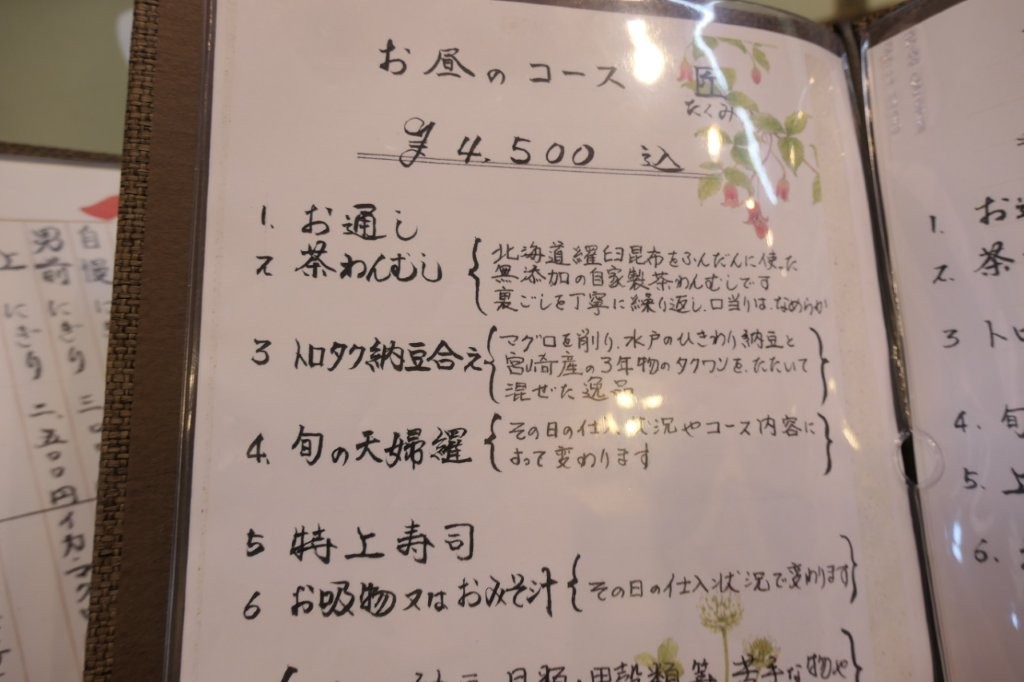 お昼のコース 匠
たくみ
¥4.500 込
1. お通し
2 茶わんむし
北海道羅臼昆布をふんだんに使った
無添加の自家製茶わんむしです
裏ごしを丁寧に繰り返し、口当りは、なめらか
3 トロタク納豆合え
マグロを削り、水戸のひきわり納豆と
宮崎産の3年物のタクワンを、たたいて
混ぜた逸品
4. 旬の天婦羅
その日の仕入状況やコース内容に
よって変わります
5 特上寿司
6 お吸物又はおみそ汁
その日の仕入状況で変わります
貝類・甲殻類等、苦手な物や
自慢 に
男前 にぎり 二、五〇〇円
上 にぎり
イカ・マグロ
1. お通
2. 茶
3 トロ
4. 旬
5. 上
6.